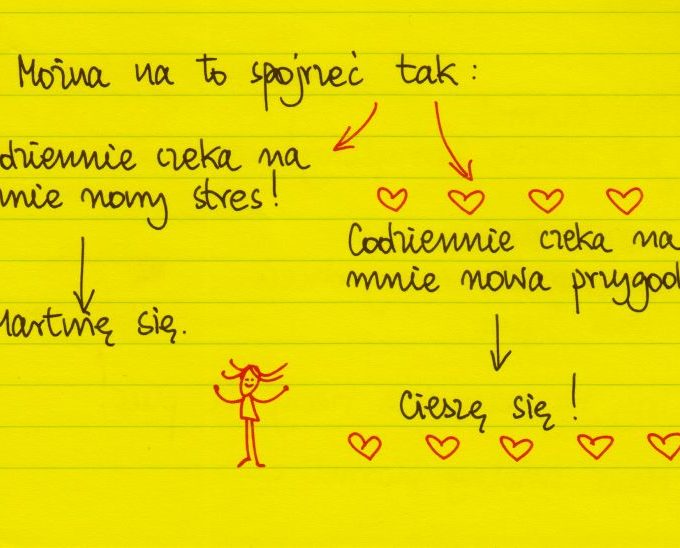 Można na to spojrzeć tak:
dziennie czeka na
mnie nowy stres!
Martwię się.
Codziennie czeka na
mnie nowa przygod
Cieszę się!